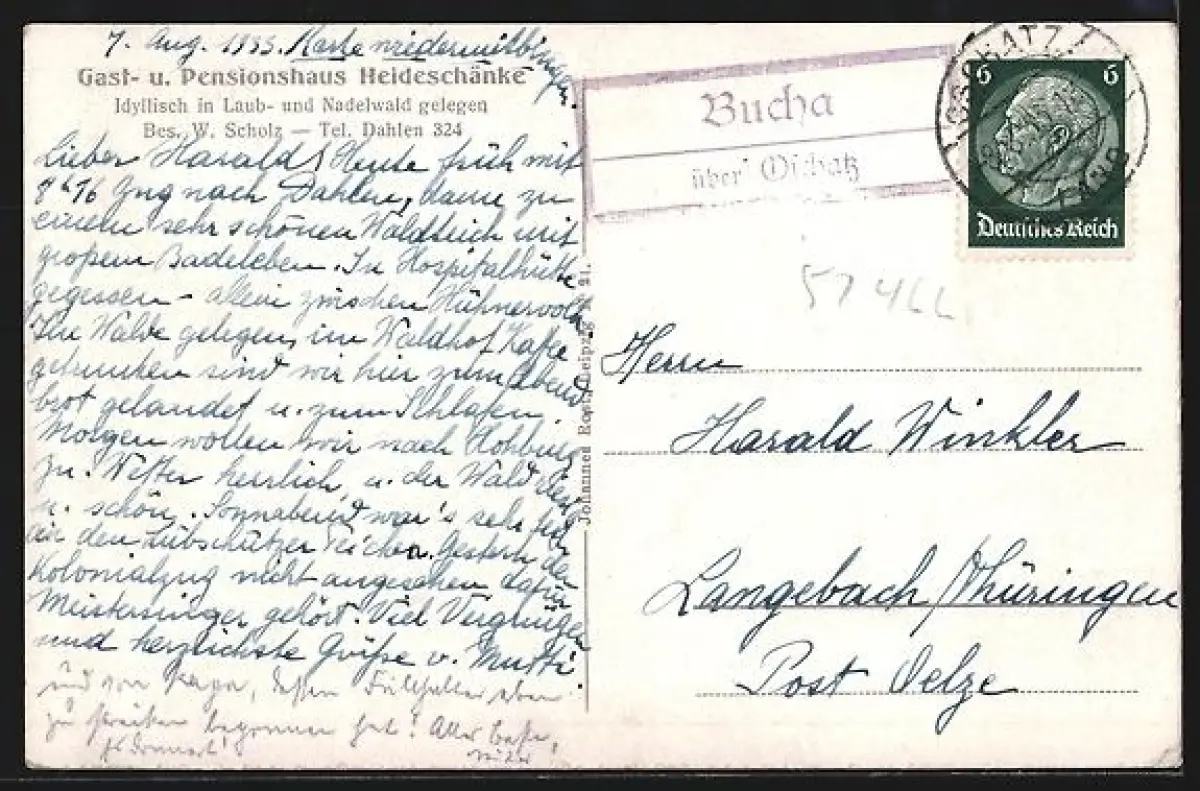 7. Aug. 1933. Karte wiedermitbringen.
Gast- u. Pensionshaus Heideschänke
Idyllisch in Laub- und Nadelwald gelegen
Bes. W. Scholz — Tel. Dahlen 324
Lieber Harald! Heute früh mit
8h 16 Zug nach Dahlen, dann zu
einem sehr schönen Waldteich mit
großem Badeleben. In Hospitalhütte
gegessen - allein zwischen Hühnervolk
Im Walde gelegen, im Waldhof Kaffee
getrunken sind wir hier zum Abend
brot gelandet u. zum Schlafen.
Morgen wollen wir nach Hohburg
zu. Wetter herrlich, u. der Wald
u. schön. Sonnabend war's sehr
an den Lübschützer Teichen. Gestern den
Kolonialzug nicht angesehen dafür
Meistersinger gehört. Viel Vergnügen
und herzlichste Grüße v. Mutti.
und von Papa, dessen Füllhalter eben
zu streiken begonnen hat! Alles Gute,
Johannes Leipzig 21.
Bucha
über Oschatz
OSCHATZ
6 6
Deutsches Reich
57466
Herrn
Harald Winkler
Langebach/Thüringen
Post Oelze